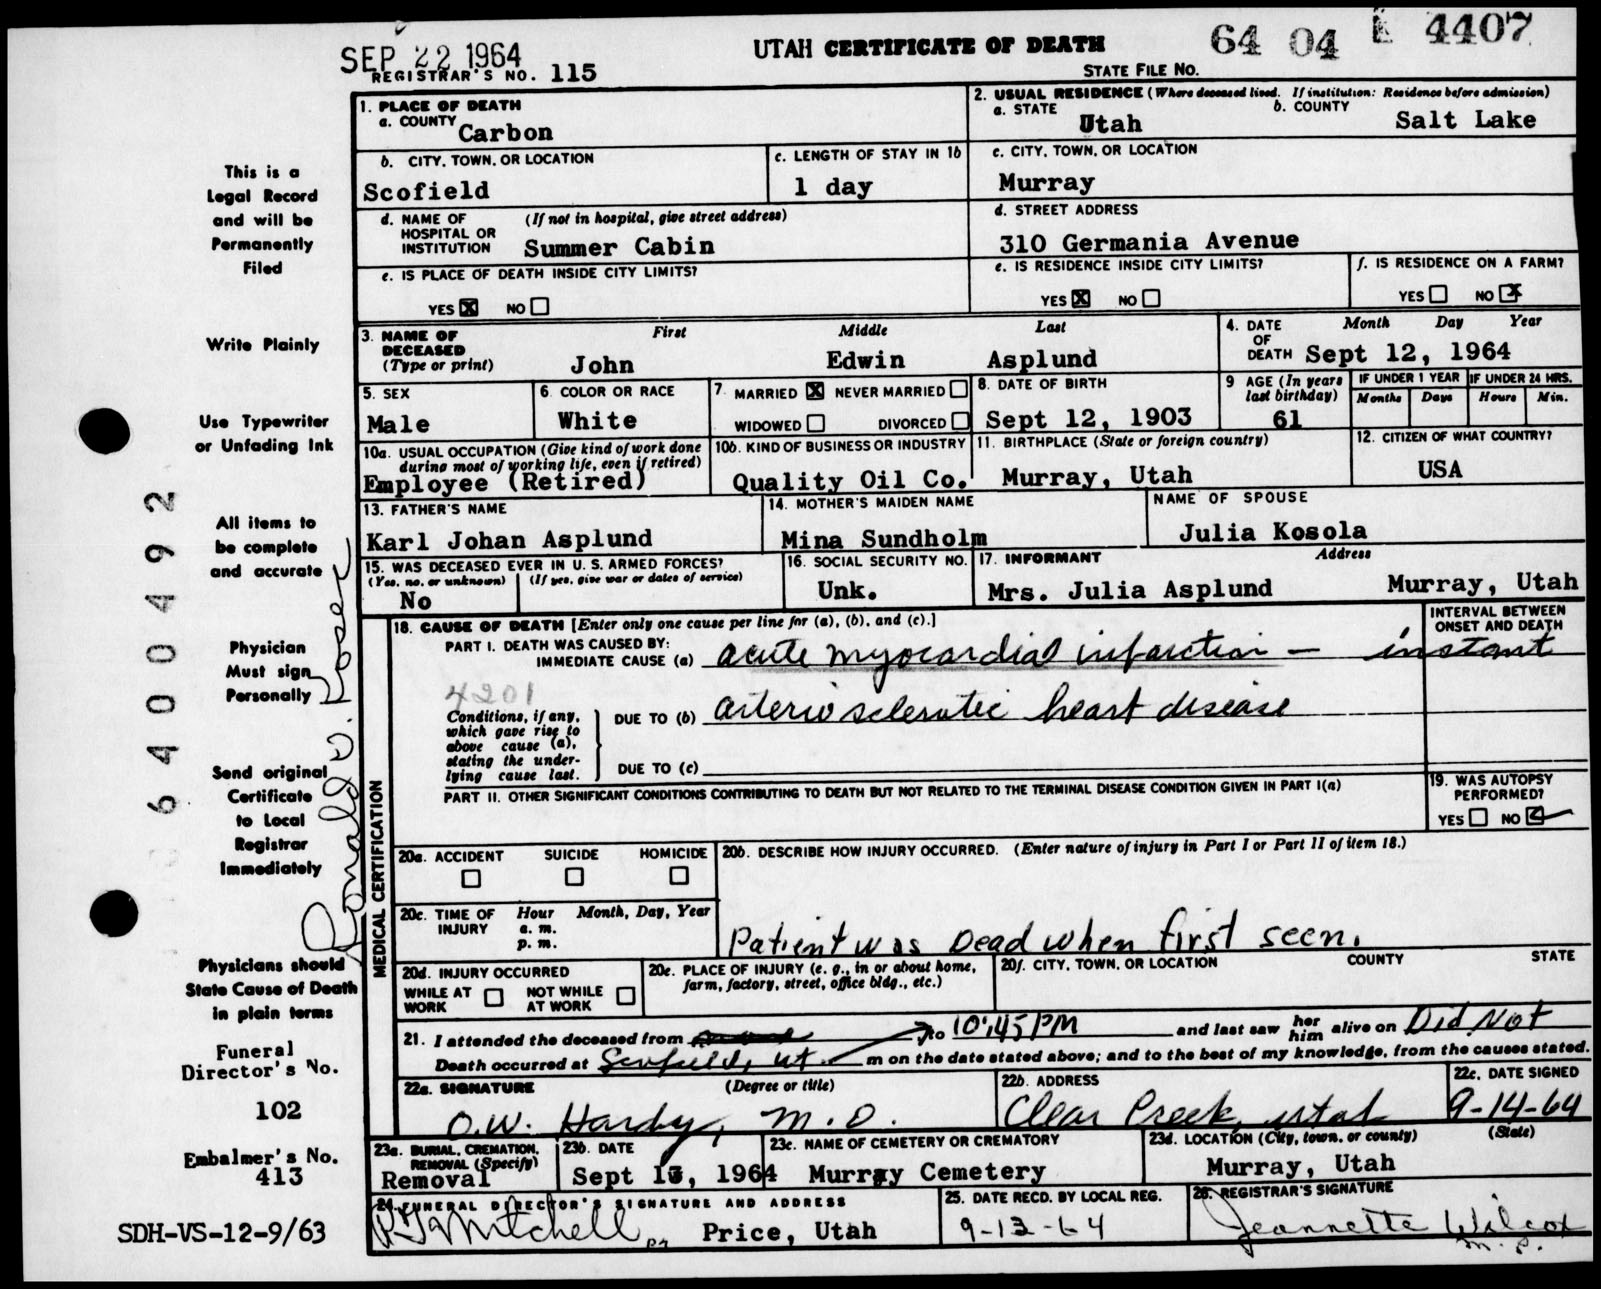 SEP 22 1964
UTAH CERTIFICATE OF DEATH
64 04 4407
REGISTRAR'S NO. 115
STATE FILE NO.
1. PLACE OF DEATH
a. COUNTY
Carbon
2. USUAL RESIDENCE (Where deceased lived. If institution: Residence before admission)
a. STATE
Utah
b. COUNTY
Salt Lake
b. CITY, TOWN, OR LOCATION
Scofield
c. LENGTH OF STAY IN 1b
1 day
c. CITY, TOWN, OR LOCATION
Murray
d. NAME OF HOSPITAL OR INSTITUTION
(If not in hospital, give street address)
Summer Cabin
d. STREET ADDRESS
310 Germania Avenue
e. IS PLACE OF DEATH INSIDE CITY LIMITS?
YES X NO
e. IS RESIDENCE INSIDE CITY LIMITS?
YES X NO
f. IS RESIDENCE ON A FARM?
YES NO X
3. NAME OF DECEASED
(Type or print)
First Middle Last
John Edwin Asplund
4. DATE OF DEATH
Month Day Year
Sept 12, 1964
5. SEX
Male
6. COLOR OR RACE
White
7. MARRIED X NEVER MARRIED
WIDOWED DIVORCED
8. DATE OF BIRTH
Sept 12, 1903
9 AGE (In years last birthday)
61
IF UNDER 1 YEAR
Months Days
IF UNDER 24 HRS.
Hours Min.
10a. USUAL OCCUPATION (Give kind of work done during most of working life, even if retired)
Employee (Retired)
10b. KIND OF BUSINESS OR INDUSTRY
Quality Oil Co.
11. BIRTHPLACE (State or foreign country)
Murray, Utah
12. CITIZEN OF WHAT COUNTRY?
USA
13. FATHER'S NAME
Karl Johan Asplund
14. MOTHER'S MAIDEN NAME
Mina Sundholm
NAME OF SPOUSE
Julia Kosola
15. WAS DECEASED EVER IN U. S. ARMED FORCES?
(Yes, no, or unknown) (If yes, give war or dates of service)
No
16. SOCIAL SECURITY NO.
Unk.
17. INFORMANT Address
Mrs. Julia Asplund Murray, Utah
MEDICAL CERTIFICATION
18. CAUSE OF DEATH [Enter only one cause per line for (a), (b), and (c).]
INTERVAL BETWEEN ONSET AND DEATH
PART I. DEATH WAS CAUSED BY:
IMMEDIATE CAUSE (a) acute myocardial infarction — instant
4201
Conditions, if any, which gave rise to above cause (a), stating the underlying cause last.
DUE TO (b) arterio sclerotic heart disease
DUE TO (c)
PART II. OTHER SIGNIFICANT CONDITIONS CONTRIBUTING TO DEATH BUT NOT RELATED TO THE TERMINAL DISEASE CONDITION GIVEN IN PART I(a)
19. WAS AUTOPSY PERFORMED?
YES NO
20a. ACCIDENT SUICIDE HOMICIDE
20b. DESCRIBE HOW INJURY OCCURRED. (Enter nature of injury in Part I or Part II of item 18.)
20c. TIME OF INJURY
Hour Month, Day, Year
a. m.
p. m.
Patient was Dead when first seen.
20d. INJURY OCCURRED
WHILE AT WORK NOT WHILE AT WORK
20e. PLACE OF INJURY (e. g., in or about home, farm, factory, street, office bldg., etc.)
20f. CITY, TOWN, OR LOCATION COUNTY STATE
21. I attended the deceased from to 10:45 PM and last saw her him alive on Did Not
Death occurred at Scofield, ut m on the date stated above; and to the best of my knowledge, from the causes stated.
22a. SIGNATURE (Degree or title)
O.W. Hardy, M.D.
22b. ADDRESS
Clear Creek, utah
22c. DATE SIGNED
9-14-64
23a. BURIAL, CREMATION, REMOVAL (Specify)
Removal
23b. DATE
Sept 13, 1964
23c. NAME OF CEMETERY OR CREMATORY
Murray Cemetery
23d. LOCATION (City, town, or county) (State)
Murray, Utah
24. FUNERAL DIRECTOR'S SIGNATURE AND ADDRESS
Mitchell Price, Utah
25. DATE RECD. BY LOCAL REG.
9-13-64
26. REGISTRAR'S SIGNATURE
Jeannette Wilcox
This is a
Legal Record
and will be
Permanently
Filed
Write Plainly
Use Typewriter
or Unfading Ink
All items to
be complete
and accurate
Physician
Must sign
Personally
Send original
Certificate
to Local
Registrar
Immediately
Physicians should
State Cause of Death
in plain terms
Funeral
Director's No.
102
Embalmer's No.
413
SDH-VS-12-9/63
6400492
Ronald W.